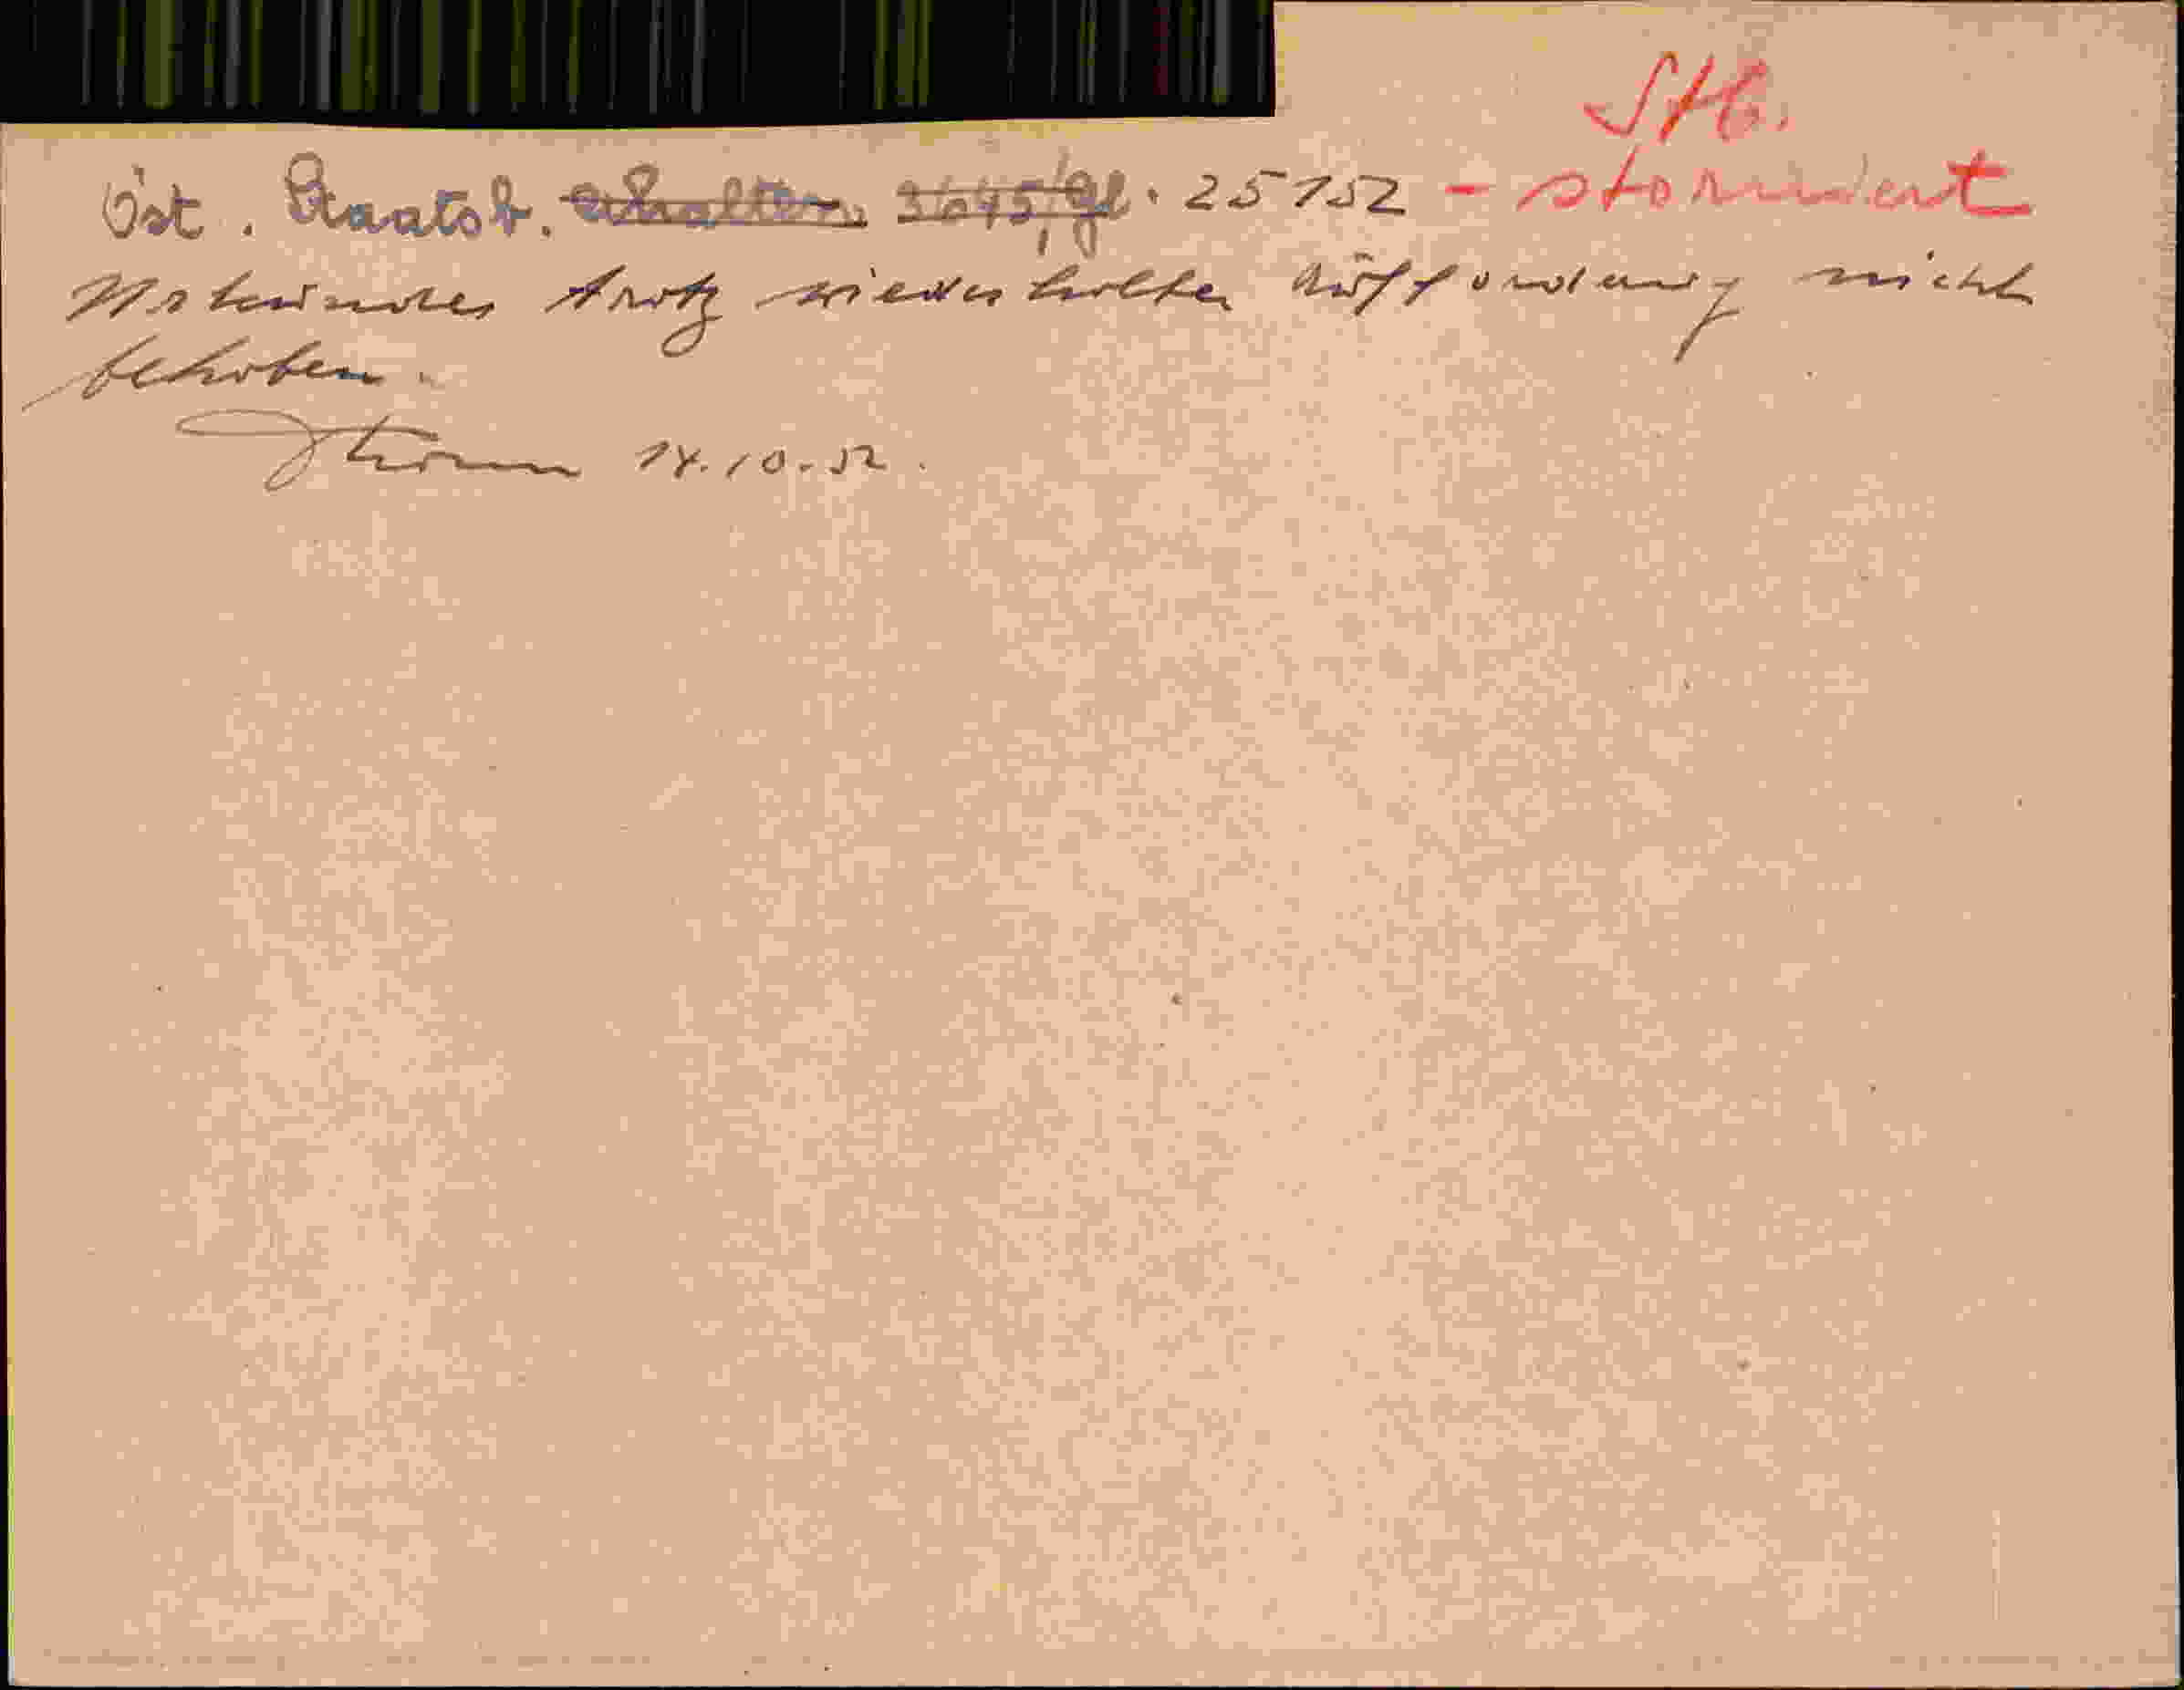 Stb.
Öst. Staatsb. erhalten 3645/Gl. 25152 - storniert
Urkunde trotz wiederholter Aufforderung nicht
behoben.
14.10.52.